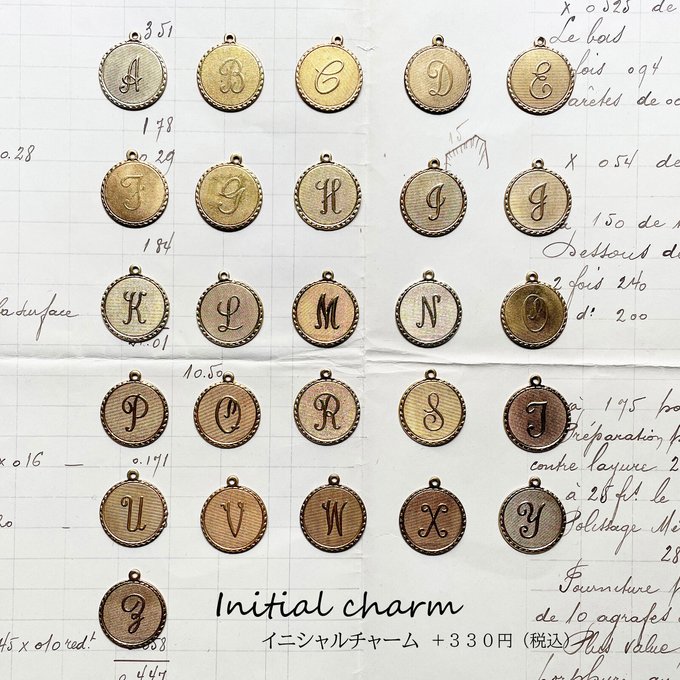 351
A B C D E
x 0525 de
Le bois
fois 094
arêtes de
178
0.28
0.29
F G H I J
15
x 054 de
à 150 de
Dessous de
2 fois 240
d: 200
184
K L M N O
la surface
.01
10.50
P Q R S T
à 195
Préparation
contre layure 2
à 25 frs. le
Polissage Mé
28
x 016 — 0.171
20
U V W X Y
Z
Fourniture
de 10 agrafes
Plus value
45 x 010 redt
0.447
Initial charm
イニシャルチャーム +330円(税込)